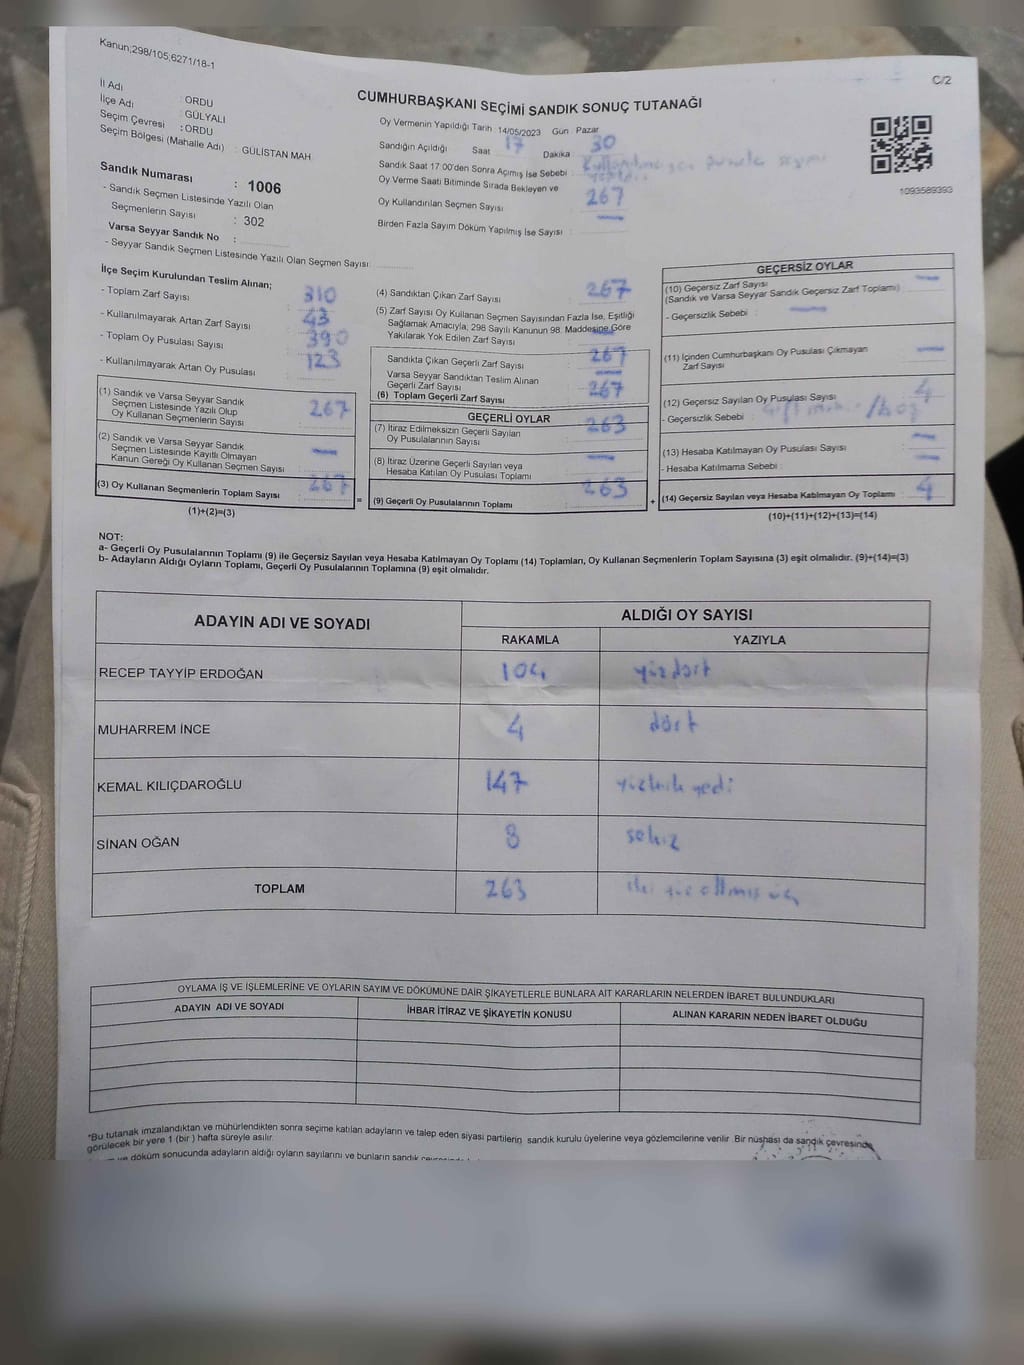 Kanun;298/105;6271/18-1
C/2
CUMHURBAŞKANI SEÇİMİ SANDIK SONUÇ TUTANAĞI
İl Adı : ORDU
İlçe Adı : GÜLYALI
Seçim Çevresi : ORDU
Seçim Bölgesi (Mahalle Adı) : GÜLİSTAN MAH
Sandık Numarası : 1006
- Sandık Seçmen Listesinde Yazılı Olan
Seçmenlerin Sayısı : 302
Varsa Seyyar Sandık No :
- Seyyar Sandık Seçmen Listesinde Yazılı Olan Seçmen Sayısı:
Oy Vermenin Yapıldığı Tarih 14/05/2023 Gün : Pazar
Sandığın Açıldığı Saat 17 Dakika 30
Sandık Saat 17:00'den Sonra Açımış İse Sebebi :
Oy Verme Saati Bitiminde Sırada Bekleyen ve
Oy Kullandırılan Seçmen Sayısı : 267
Birden Fazla Sayım Döküm Yapılmış İse Sayısı : —
1093589393
İlçe Seçim Kurulundan Teslim Alınan;
- Toplam Zarf Sayısı : 310
- Kullanılmayarak Artan Zarf Sayısı : 43
- Toplam Oy Pusulası Sayısı : 390
- Kullanılmayarak Artan Oy Pusulası : 123
(1) Sandık ve Varsa Seyyar Sandık
Seçmen Listesinde Yazılı Olup
Oy Kullanan Seçmenlerin Sayısı : 267
(2) Sandık ve Varsa Seyyar Sandık
Seçmen Listesinde Kayıtlı Olmayan
Kanun Gereği Oy Kullanan Seçmen Sayısı : —
(3) Oy Kullanan Seçmenlerin Toplam Sayısı : 267 =
(1)+(2)=(3)
(4) Sandıktan Çıkan Zarf Sayısı : 267
(5) Zarf Sayısı Oy Kullanan Seçmen Sayısından Fazla İse, Eşitliği
Sağlamak Amacıyla; 298 Sayılı Kanunun 98. Maddesine Göre
Yakılarak Yok Edilen Zarf Sayısı : —
Sandıkta Çıkan Geçerli Zarf Sayısı : 267
Varsa Seyyar Sandıktan Teslim Alınan
Geçerli Zarf Sayısı : —
(6) Toplam Geçerli Zarf Sayısı : 267
GEÇERLİ OYLAR
(7) İtiraz Edilmeksizin Geçerli Sayılan
Oy Pusulalarının Sayısı : 263
(8) İtiraz Üzerine Geçerli Sayılan veya
Hesaba Katılan Oy Pusulası Toplamı : —
(9) Geçerli Oy Pusulalarının Toplamı : 263 +
GEÇERSİZ OYLAR
(10) Geçersiz Zarf Sayısı : —
(Sandık ve Varsa Seyyar Sandık Geçersiz Zarf Toplamı)
- Geçersizlik Sebebi : —
(11) İçinden Cumhurbaşkanı Oy Pusulası Çıkmayan : —
Zarf Sayısı
(12) Geçersiz Sayılan Oy Pusulası Sayısı : 4
- Geçersizlik Sebebi : / boş
(13) Hesaba Katılmayan Oy Pusulası Sayısı : —
- Hesaba Katılmama Sebebi : —
(14) Geçersiz Sayılan veya Hesaba Katılmayan Oy Toplamı : 4
(10)+(11)+(12)+(13)=(14)
NOT:
a- Geçerli Oy Pusulalarının Toplamı (9) ile Geçersiz Sayılan veya Hesaba Katılmayan Oy Toplamı (14) Toplamları, Oy Kullanan Seçmenlerin Toplam Sayısına (3) eşit olmalıdır. (9)+(14)=(3)
b- Adayların Aldığı Oyların Toplamı, Geçerli Oy Pusulalarının Toplamına (9) eşit olmalıdır.
ADAYIN ADI VE SOYADI ALDIĞI OY SAYISI
RAKAMLA YAZIYLA
RECEP TAYYİP ERDOĞAN 104 yüzdört
MUHARREM İNCE 4 dört
KEMAL KILIÇDAROĞLU 147 yüzkırk yedi
SİNAN OĞAN 8 sekiz
TOPLAM 263 iki yüz altmış üç
OYLAMA İŞ VE İŞLEMLERİNE VE OYLARIN SAYIM VE DÖKÜMÜNE DAİR ŞİKAYETLERLE BUNLARA AİT KARARLARIN NELERDEN İBARET BULUNDUKLARI
ADAYIN ADI VE SOYADI İHBAR İTİRAZ VE ŞİKAYETİN KONUSU ALINAN KARARIN NEDEN İBARET OLDUĞU
*Bu tutanak imzalandıktan ve mühürlendikten sonra seçime katılan adayların ve talep eden siyasi partilerin sandık kurulu üyelerine veya gözlemcilerine verilir. Bir nüshası da sandık çevresinde
görülecek bir yere 1 (bir ) hafta süreyle asılır.
ve döküm sonucunda adayların aldığı oyların sayılarını ve bunların sandık